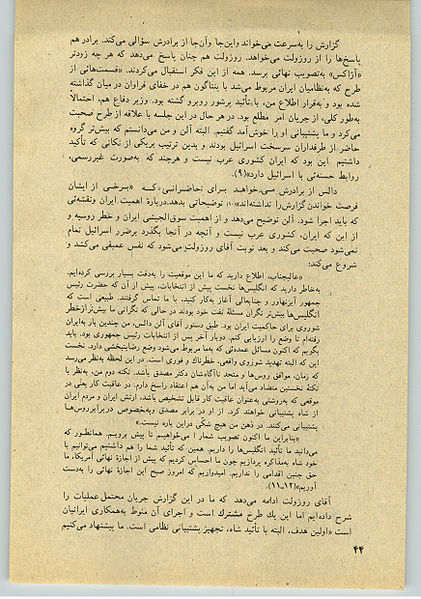 گزارش را به‌سرعت می‌خواند واین‌جا وآن‌جا از برادرش سؤالی می‌کند. برادر هم
پاسخ‌ها را از روزولت می‌خواهد. روزولت هم چنان پاسخ می‌دهد که هر چه زودتر
«آژاکس» به‌تصویب نهائی برسد. همه از این فکر استقبال می‌کردند. «قسمت‌هائی از
طرح که به‌نظامیان ایران مربوط می‌شد با پنتاگون هم در خفای فراوان در میان گذاشته
شده بود و به‌قرار اطلاع من، با تأئید پرشور روبرو گشته بود. وزیر دفاع هم، احتمالاً
به‌طور کلی، از جریان امر مطلع بود. در هر حال در این جلسه با علاقه از طرح صحبت
می‌کرد و ما پشتیبانی او را خوش‌آمد گفتیم. البته آلن و من می‌دانستم که بیش‌تر گروه
حاضر از طرفداران سرسخت اسرائیل بودند و بدین ترتیب بریکی از نکاتی که تأکید
داشتیم این بود که ایران کشوری عرب نیست و هرچند که به‌صورت غیررسمی،
روابط حسنه‌ئی با اسرائیل دارد»(۹).
دالس از برادرش می‌خواهد برای حاضرانی که «برخی از ایشان
فرصت خواندن گزارش‌را نداشته‌اند»(۱۰) توضیحاتی بدهد. دربارهٔ اهمیت ایران ونقشه‌ئی
که باید اجرا شود. آلن توضیح می‌دهد و از اهمیت سوق‌الجیشی ایران و خطر روسیه و
از این که ایران، کشوری عرب نیست و آنچه در آنجا بگذرد برضرر اسرائیل تمام
نمی‌شود صحبت می‌کند و بعد نوبت آقای روزولت می‌شود که نفس عمیقی می‌کشد و
شروع می‌کند:
«عالیجناب، اطلاع دارید که ما این موقعیت را به‌دقت بسیار بررسی کرده‌ایم.
به‌خاطر دارید که انگلیس‌ها نخست پیش از انتخابات، پیش از آن که حضرت رئیس
جمهور آیزنهاور و جنابعالی آغاز به‌کار کنید، با ما تماس گرفتند. طبیعی است که
انگلیس‌ها بیش‌تر نگران مسئلهٔ نفت خود بودند در حالی که نگرانی ما بیش‌تر ازخطر
شوروی برای حاکمیت ایران بود. طبق دستور آقای آلن دالس، من چندین بار به‌ایران
رفته‌ام تا وضع را ارزیابی کنم. دوبار آخر پس از انتخابات رئیس جمهوری بود. باید
بگویم که اکنون مسائل عمده‌ئی که به‌ما مربوط می‌شود وضع رضایتبخشی دارد. نخست
این که البته تهدید شوروی واقعی، خطرناك و فوری است. در این لحظه به‌نظر می‌رسد
که زمان، موافق روس‌ها و متحد ناآگاه‌شان دکتر مصدق باشد. نکته دوم من، به‌نظر با
نکتهٔ نخستین متضاد می‌آید اما من به‌آن هم اعتقاد راسخ دارم: در عاقبت کار یعنی در
موقعی که به‌روشنی به‌عنوان عاقبت کار قابل تشخیص باشد، ارتش ایران و مردم ایران
از شاه پشتیبانی خواهند کرد. از او در برابر مصدق وبه‌خصوص در برابر روس‌ها
پشتیبانی می‌کنند. در ذهن من هیچ شکی دراین باره نیست.»
«بنابراین ما اکنون تصویب شما را می‌خواهیم تا پیش برویم. همانطور که
می‌دانید ما تأئید انگلیس‌ها را داریم. همین که تأئید شما را هم داشتیم می‌توانیم با
خود شاه به‌مذاکره پردازیم چون ما احساس کردیم که پیش از اجازهٔ نهائی آمریکا، ما
حق چنین اقدامی را نداریم. امیدواریم که امروز صبح این اجازهٔ نهائی را به‌دست
آوریم»(۱۲ـ۱۱).
آقای روزولت ادامه می‌دهد که ما در این گزارش جریان محتمل عملیات را
شرح داده‌ایم اما این یك طرح مشترك است و اجرای آن منوط به‌همکاری ایرانیان
است «اولین هدف، البته با تأئید شاه، تجهیز پشتیبانی نظامی است. ما پیشنهاد می‌کنیم
۴۴